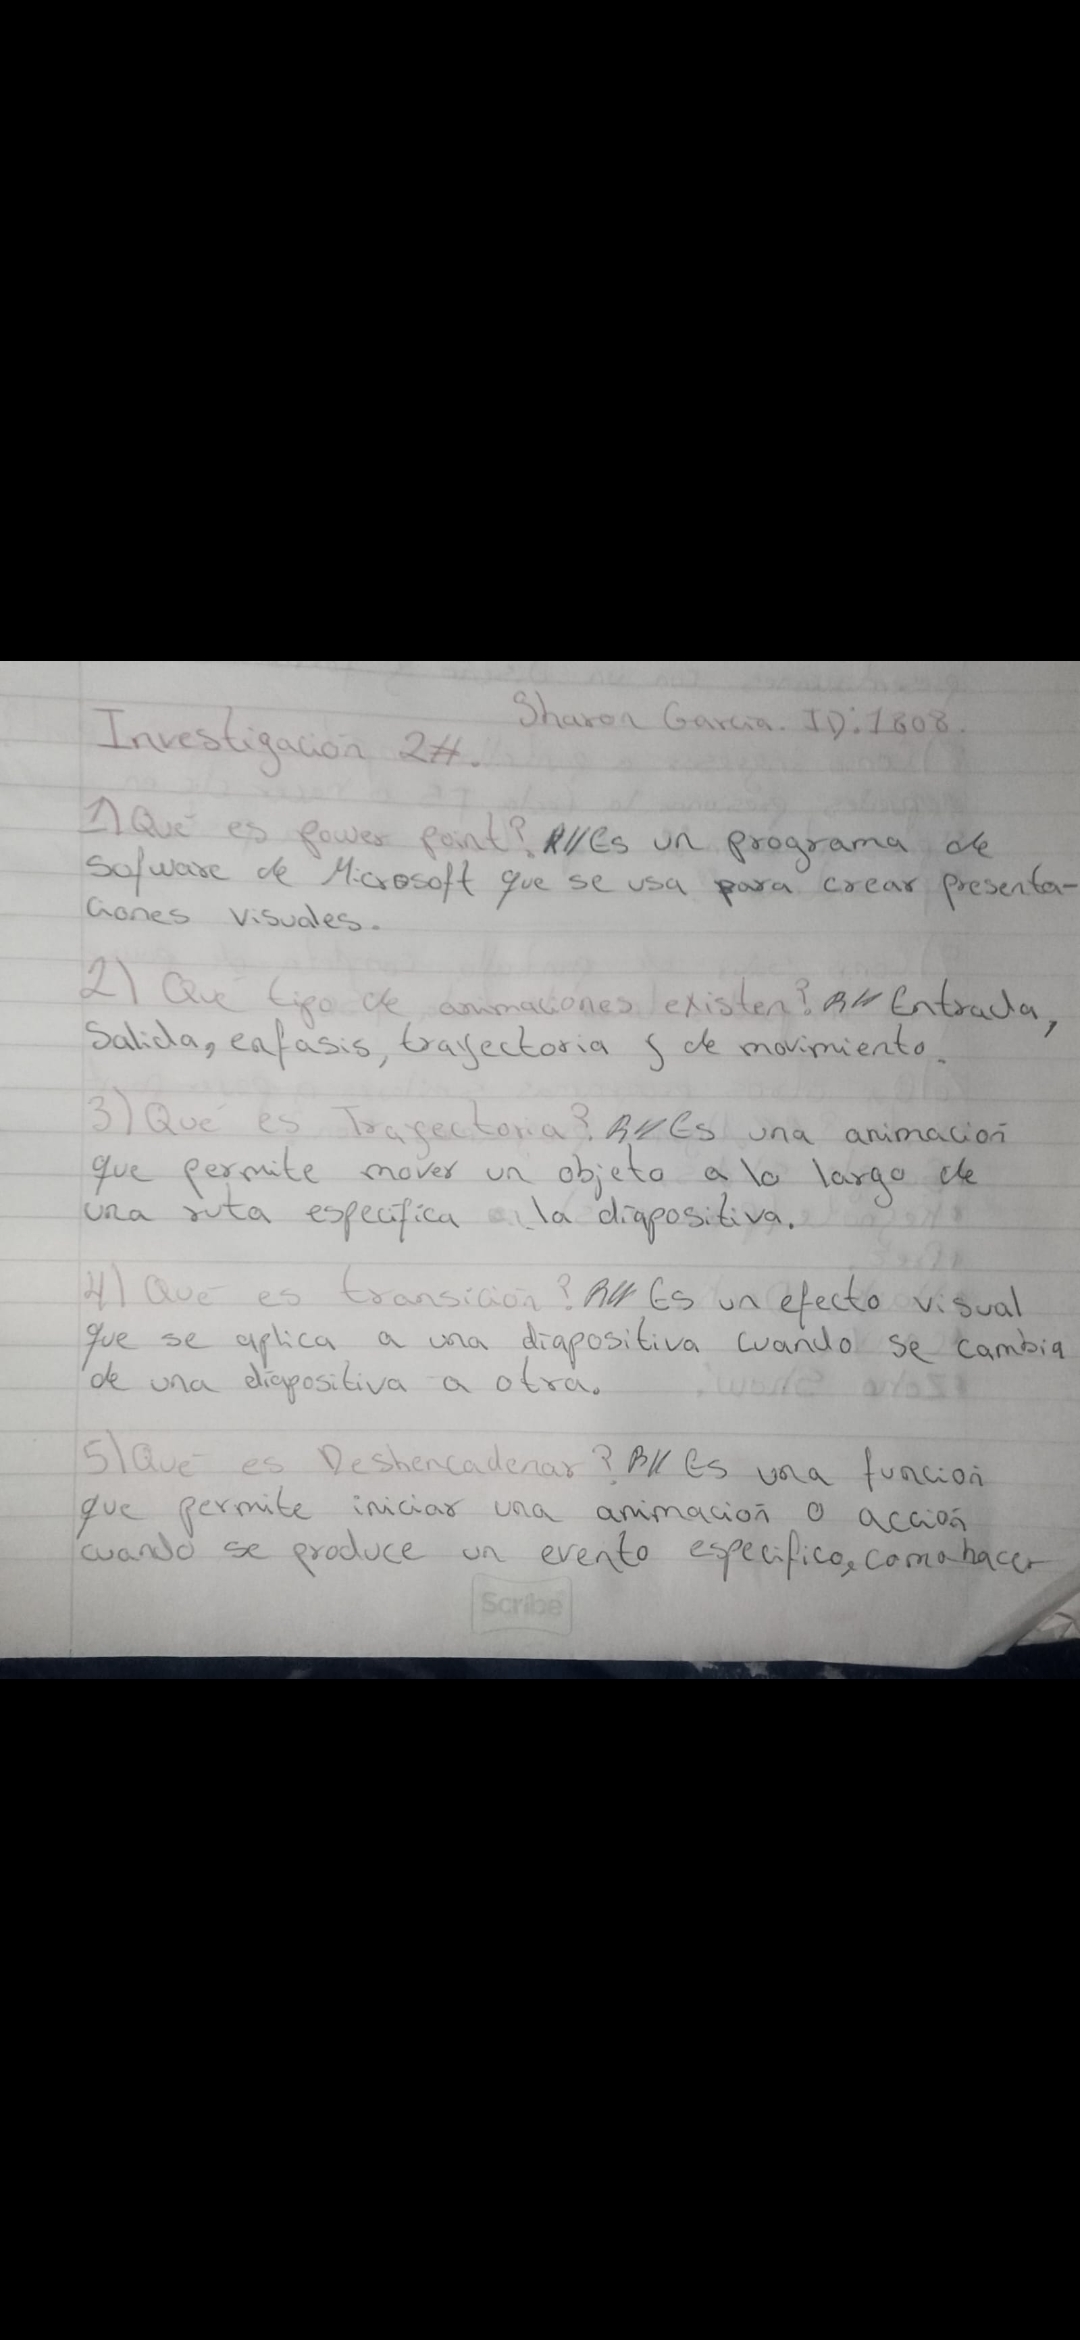 Sharon Garcia. ID:1808.
Investigación 2#.
1) Qué es power point? R// Es un programa de
Sofware de Microsoft que se usa para crear presenta-
ciones visuales.
2) Qué tipo de animaciones existen? R// Entrada,
Salida, enfasis, trayectoria y de movimiento.
3) Qué es Trayectoria? R// Es una animación
que permite mover un objeto a lo largo de
una ruta especifica la diapositiva.
4) Qué es transición? R// Es un efecto visual
que se aplica a una diapositiva cuando se cambia
de una diapositiva a otra.
5) Qué es Deshencadenar? R// Es una función
que permite iniciar una animación o acción
cuando se produce un evento especifico, como hacer
Scribe